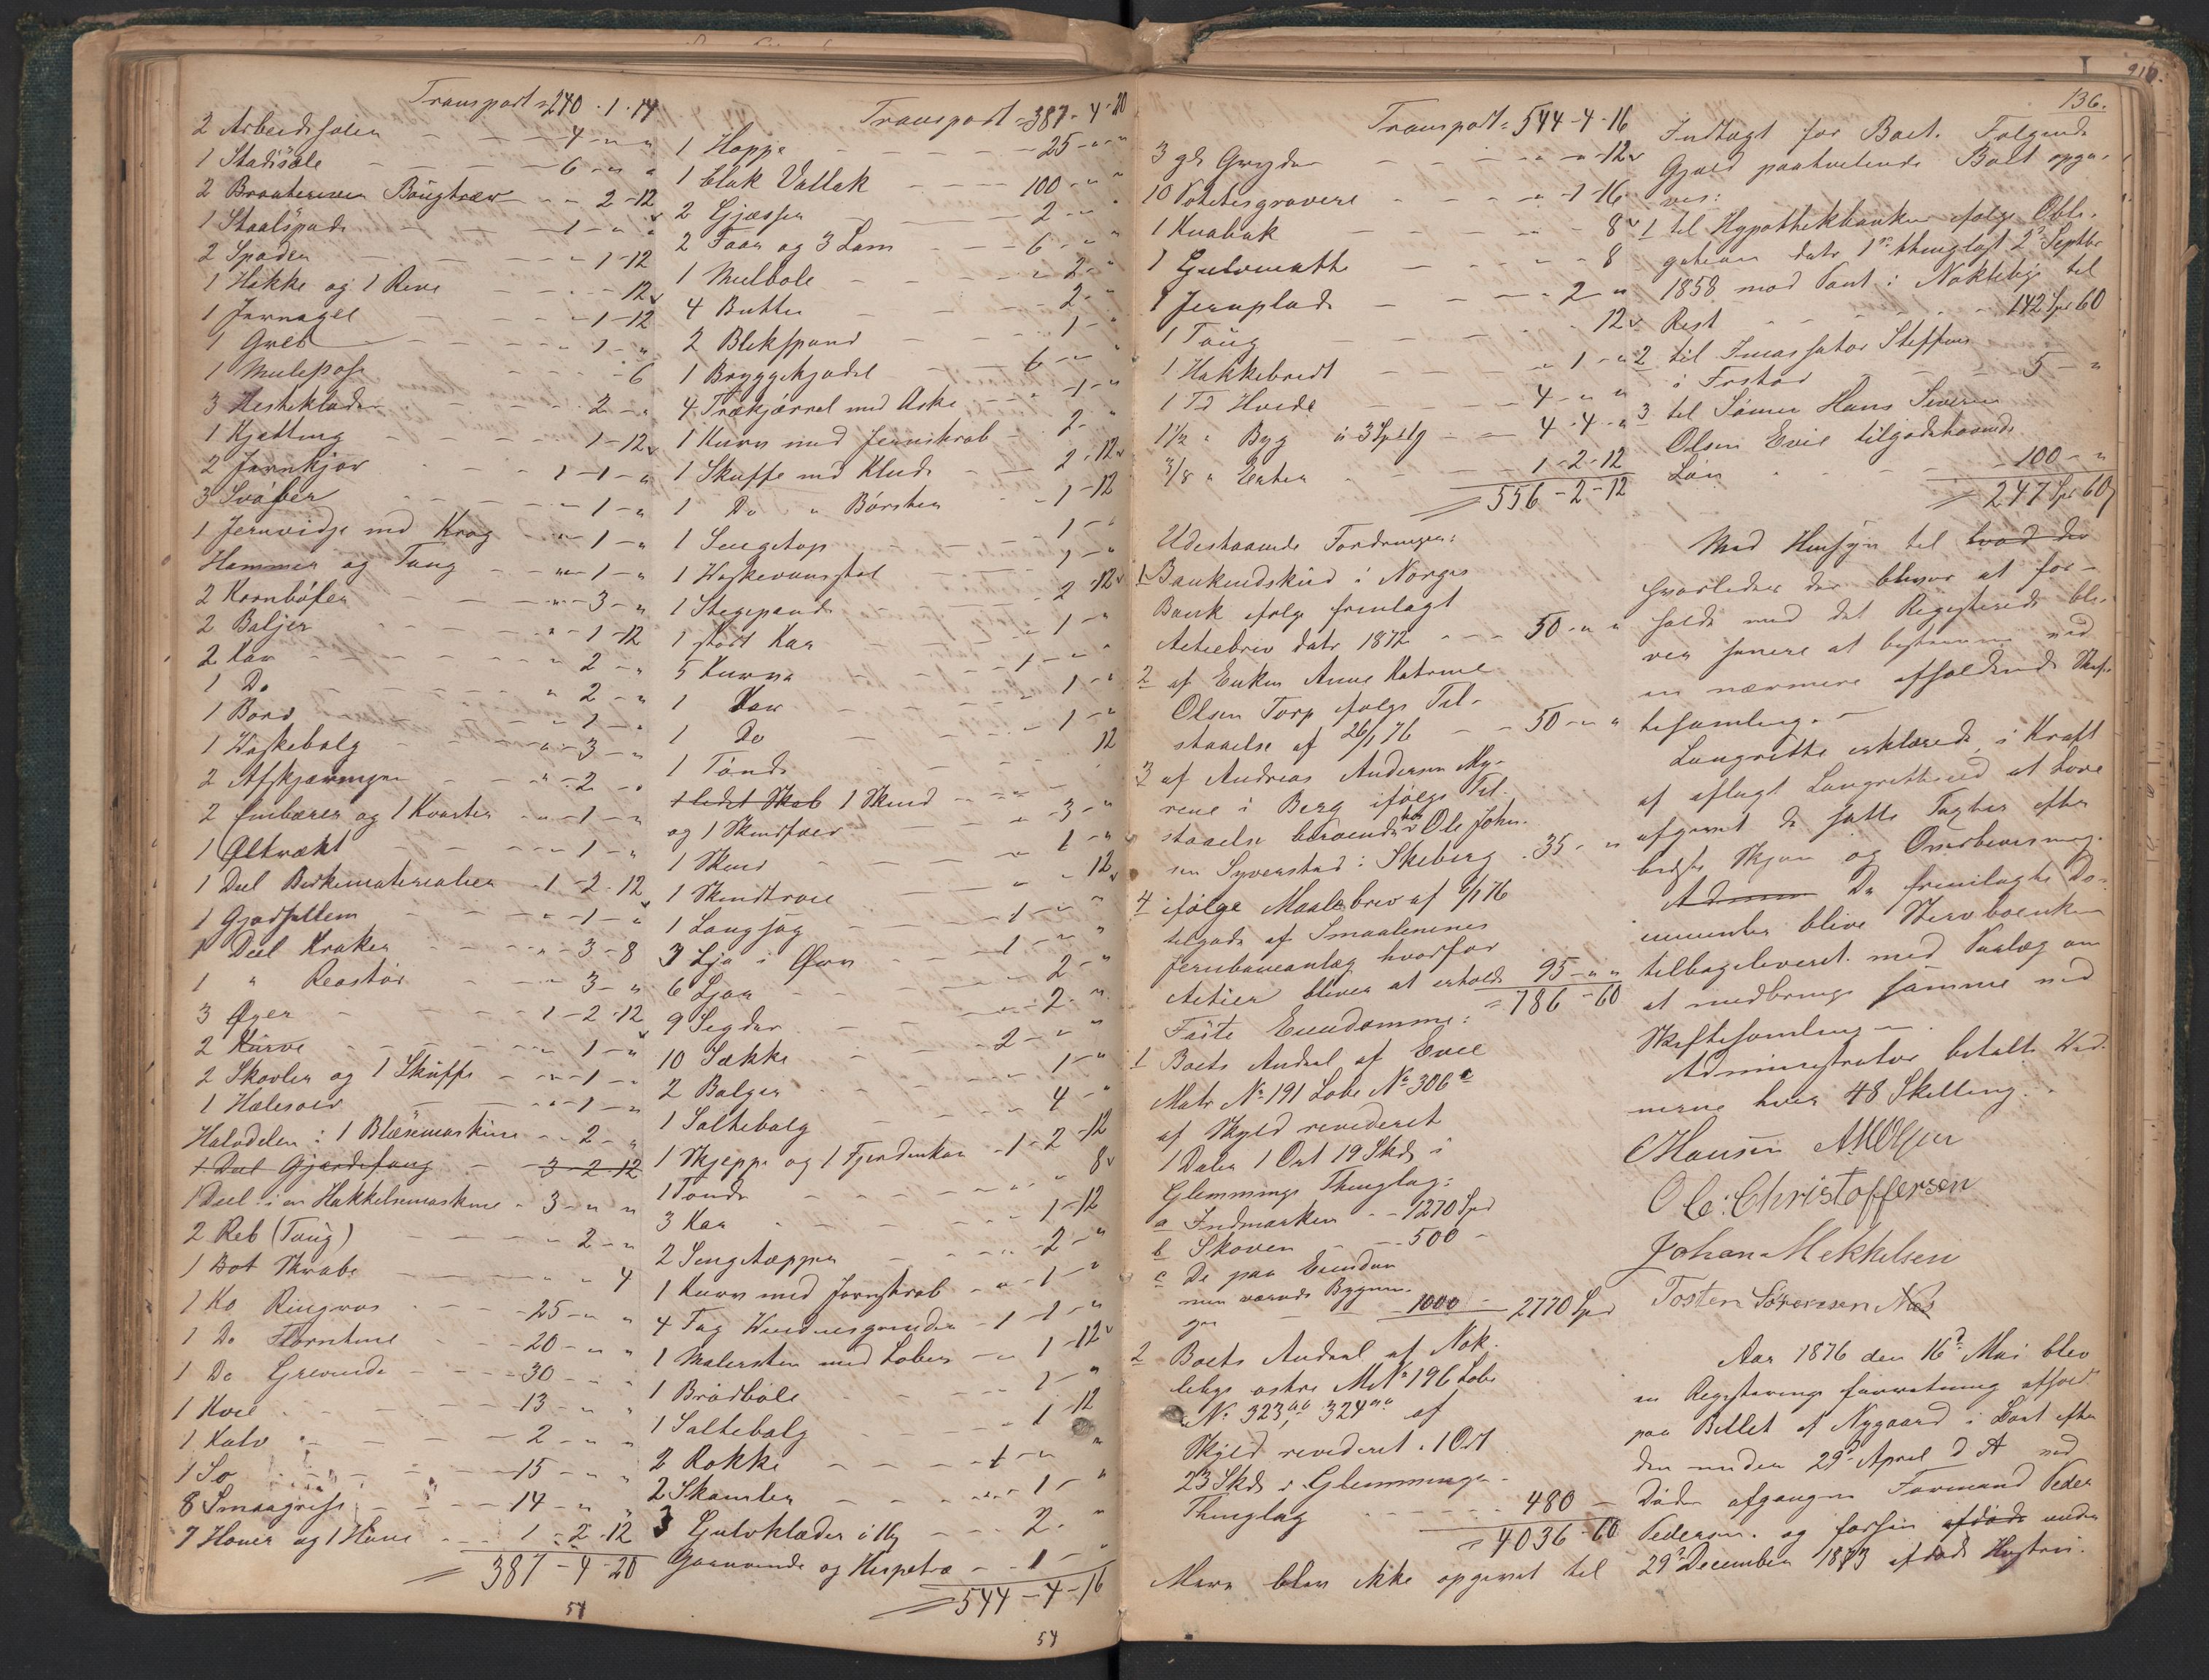 Transport = 240 . 1 . 14
2 Arbeidssæler - - - 4 - " "
1 Stadssæle - - - 6 - " "
2 Bougtræer - " - 2 - 12
1 Staalspade - - 1 - " "
2 Spader - - - 1 - 12
1 Hakke og 1 Rive - - - 12
1 Jernagel - - 1 - 12
1 Greb - - - 1 - "
1 Mulepose - - - 6
3 Hesteklæder - - 2 - "
1 Kjetting - - - 1 - 12
2 Jernkjør - - - 1 - 1 - "
3 Svøber - - - 1 - "
1 Jernvidje med Krog - " - 1 - "
Hammer og Tang - " - 1 - "
2 Kornbøser - - " - 3 - "
2 Baljer - - " - 1 - 12
2 Kar - - - 2 - "
1 Do - - " 2 - "
1 Bord - - " - 1 - "
1 Vaskebalg - - " - 3 - "
2 Afskjæringer - - " - 2 - "
2 Embarer og 1 Kvarter - " - 1 - "
1 Øltrakt - - - 1 - "
1 Deel Birkematerialier - 1 - 2 - 12
1 Gjødsellem - - " - 1 - "
1 Deel Kraker - - " - 3 - 8
1 " Reastør - - 3 - "
3 Øxer - - - 1 - 2 - 12
2 Kurve - - - 1 - "
2 Skovler og 1 Skuffe - " - 1 - "
1 Hælesold - - " - 1 - "
Halvdelen i 1 Blæsemaskine - - 2 - "
1 Deel Gjærdefang - 3 - 2 - 12
1 Deel i en Hakkelsemaskine - 3 - " "
2 Reb (Taug) - - - 2 - "
1 Bot Skrabe - - - " 4
1 Ko Ringros - - - 25 - " "
1 Do Stjernline - - 20 - " "
1 Do Grevinde - - 30 - " "
1 Kvie - - - 13 - " "
1 Kalv - - - 2 - " "
1 So - - - 15 - " "
8 Smaagrise - - 14 - " "
7 Høner og 1 Hane - - 1 - 2 - 12
= 387 - 4 - 20
54
Transport = 387 - 4 - 20
1 Hoppe - - - 25 - " "
1 blak Vallak - - 100 - " "
2 Gjæsser - - - 2 - " "
2 Faar og 3 Lam - - 6 - " "
1 Melbøle - - " 2 - "
4 Butter - - - 2 - "
2 Blikspand - - - 1 - "
1 Bryggekjedel - - 6 - " "
4 Trækjørrel med Aske - - - 1 - "
1 Kurv med Jernskrab - - 2 - "
1 Skuffe med Klude - - 2 - 12
1 Do " Børster - - 1 - 12
1 Sengetop - - - 1 - "
1 Vaskevandsfad - - 1 - "
1 Stegepande - - 2 - 12
1 stort Kar - - - 1 - "
5 Kurve - - - 1 - "
1 Kar - - - 1 - "
1 Do - - - 1 - "
1 Tønde - - - 12
1 lidet Skab 1 Skind - - -
og 1 Skindfæld - - - 3 - "
1 Skind - - - 1 - "
1 Skindtrøie - - " - 12
1 Langsag - - - 1 - "
3 Lja i Orv - - - 1 - "
6 Ljaer - - - 2 - "
9 Segder - - - 2 - "
10 Sække - - - 2 - " "
2 Balger - - - 1 - "
1 Saltebalg - - - 4 - "
1 Skjeppe og 1 Fjerdenkar - 1 - 2 - 12
1 Tønde - - - 8
3 Kar - - - 1 - 12
2 Sengetæpper - - - 2 - "
1 Kurv med Jernskrab - - 1 - "
4 Fag Vinduesgrinder - 1 - 1 - "
1 Malersten med Løber - - 1 - 12
1 Brødbøle - - - 1 - "
1 Saltebalg - - - 1 12
2 Rokke - - - 1 - " "
2 Skamler - - - 1 - "
3 Gulvklæder i - - - 2 - "
Garnvinde og Hespetræ - - 1 - "
= 544 - 4 - 16
54
Transport = 544 - 4 - 16
3 gl Gryder - - - " - 12
10 Potetesgravere - - - " - 1 - 16
1 Knabak - - - 8
1 Gulvmatte - - - 8
1 Jernplade - - - 2 - "
1 Taug - - - 12
1 Hakkebredt - - - 1 - "
1 Td Hvede - - - 4 - " "
1½ " Byg à 3 Spd - - 4 - 4 - "
3/8 " Erter - - 1 - 2 - 12
= 556 - 2 - 12
Udestaaende Fordringer:
1 Bankindskud i Norges
Bank ifølge fremlagt
Actiebrev datr 1872 - - - 50 - " "
2 af Enken Anne Katrine
Olsen Torp ifølge Til-
staaelse af 26/1 76 - - 50 - " "
3 af Andreas Andersen My-
rene i Berg ifølge Til-
staaelse beroende hos Ole John-
sen Syverstad i Skeberg . 35 - "
4 ifølge Maalebrev af 6/1 76
tilgode af Smaalenenes
Jernbaneanlæg hvorfor
Actier bliver at erholde 95 - " "
= 786 - 60
Faste Eiendomme:
1 Boets Andeel af Evie
Matr No 191 Løbe No 306 a
af Skyld revideret
1 Daler 1 Ort 19 Skd i
Glemminge Thinglag:
a Indmarken - - 1270 Spd
b Skoven - - - 500 -
c De paa Eiendom-
men værende Bygnin-
ger - - 1000 - 2770 Spd
2 Boets Andeel af Nok-
leby østre M No 196 Løbe
No 323 aa, 324 aa af
Skyld revideret . 1 Ort
23 Skd i Glemminge
Thinglag - - - 480 -
= 4036 - 60
Mere blev ikke opgivet til
910.
136.
Indtægt for Boet. Følgende
Gjæld paahvilende Boet opga-
ves:
1 til Hypothekbanken ifølge Obli-
gation datr 1ste thinglæst 2den Septbr
1858 mod Pant i Nokleby til
Rest - - - 142 Spd 60
2 til Incassator Steffens
i Frstad - - - 5 - "
3 til Sønnen Hans Severin
Olsen Evie tilgodehavende
Løn - - - 100 - "
= 247 Spd 60
Med Hensyn til hvad der
hvorledes der bliver at for-
holde med det Registrerede bli-
ver senere at bestemme ved
en nærmere afholdende Skif-
tesamling. -
Laugrettet erklærede i Kraft
af aflagt Laugrettesed at have
afgivet de satte Taxter efter
bedste Skjøn og Overbevisning.
De fremlagte Do-
cumenter blive Stervboenken
tilbageleveret med Paalæg om
at medbringe samme ved
Skiftesamling -
Administrator betalte Vid-
nerne hver 48 Skilling. -
C Hansen A H Olsen
Ole: Christoffersen
Johan Mekkelsen
Tosten Sörenssen Næs
Aar 1876 den 16de Mai blev
en Registrerings forretning afholdt
paa Billet af Nygaard i Borg efter
den under 29de April d A ved
Døden afgangne Formand Peder
Pedersen. og forhen afdøde under
29de December 1873 afdøde Hustru.